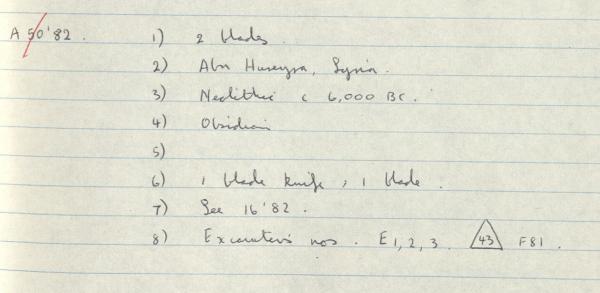 A 50'82. 1) 2 blades.
2) Abu Hureyra, Syria.
3) Neolithic c 6,000 BC.
4) Obsidian
5)
6) 1 blade knife; 1 blade.
7) See 16'82.
8) Excavators nos. E1, 2, 3. 43 F81.